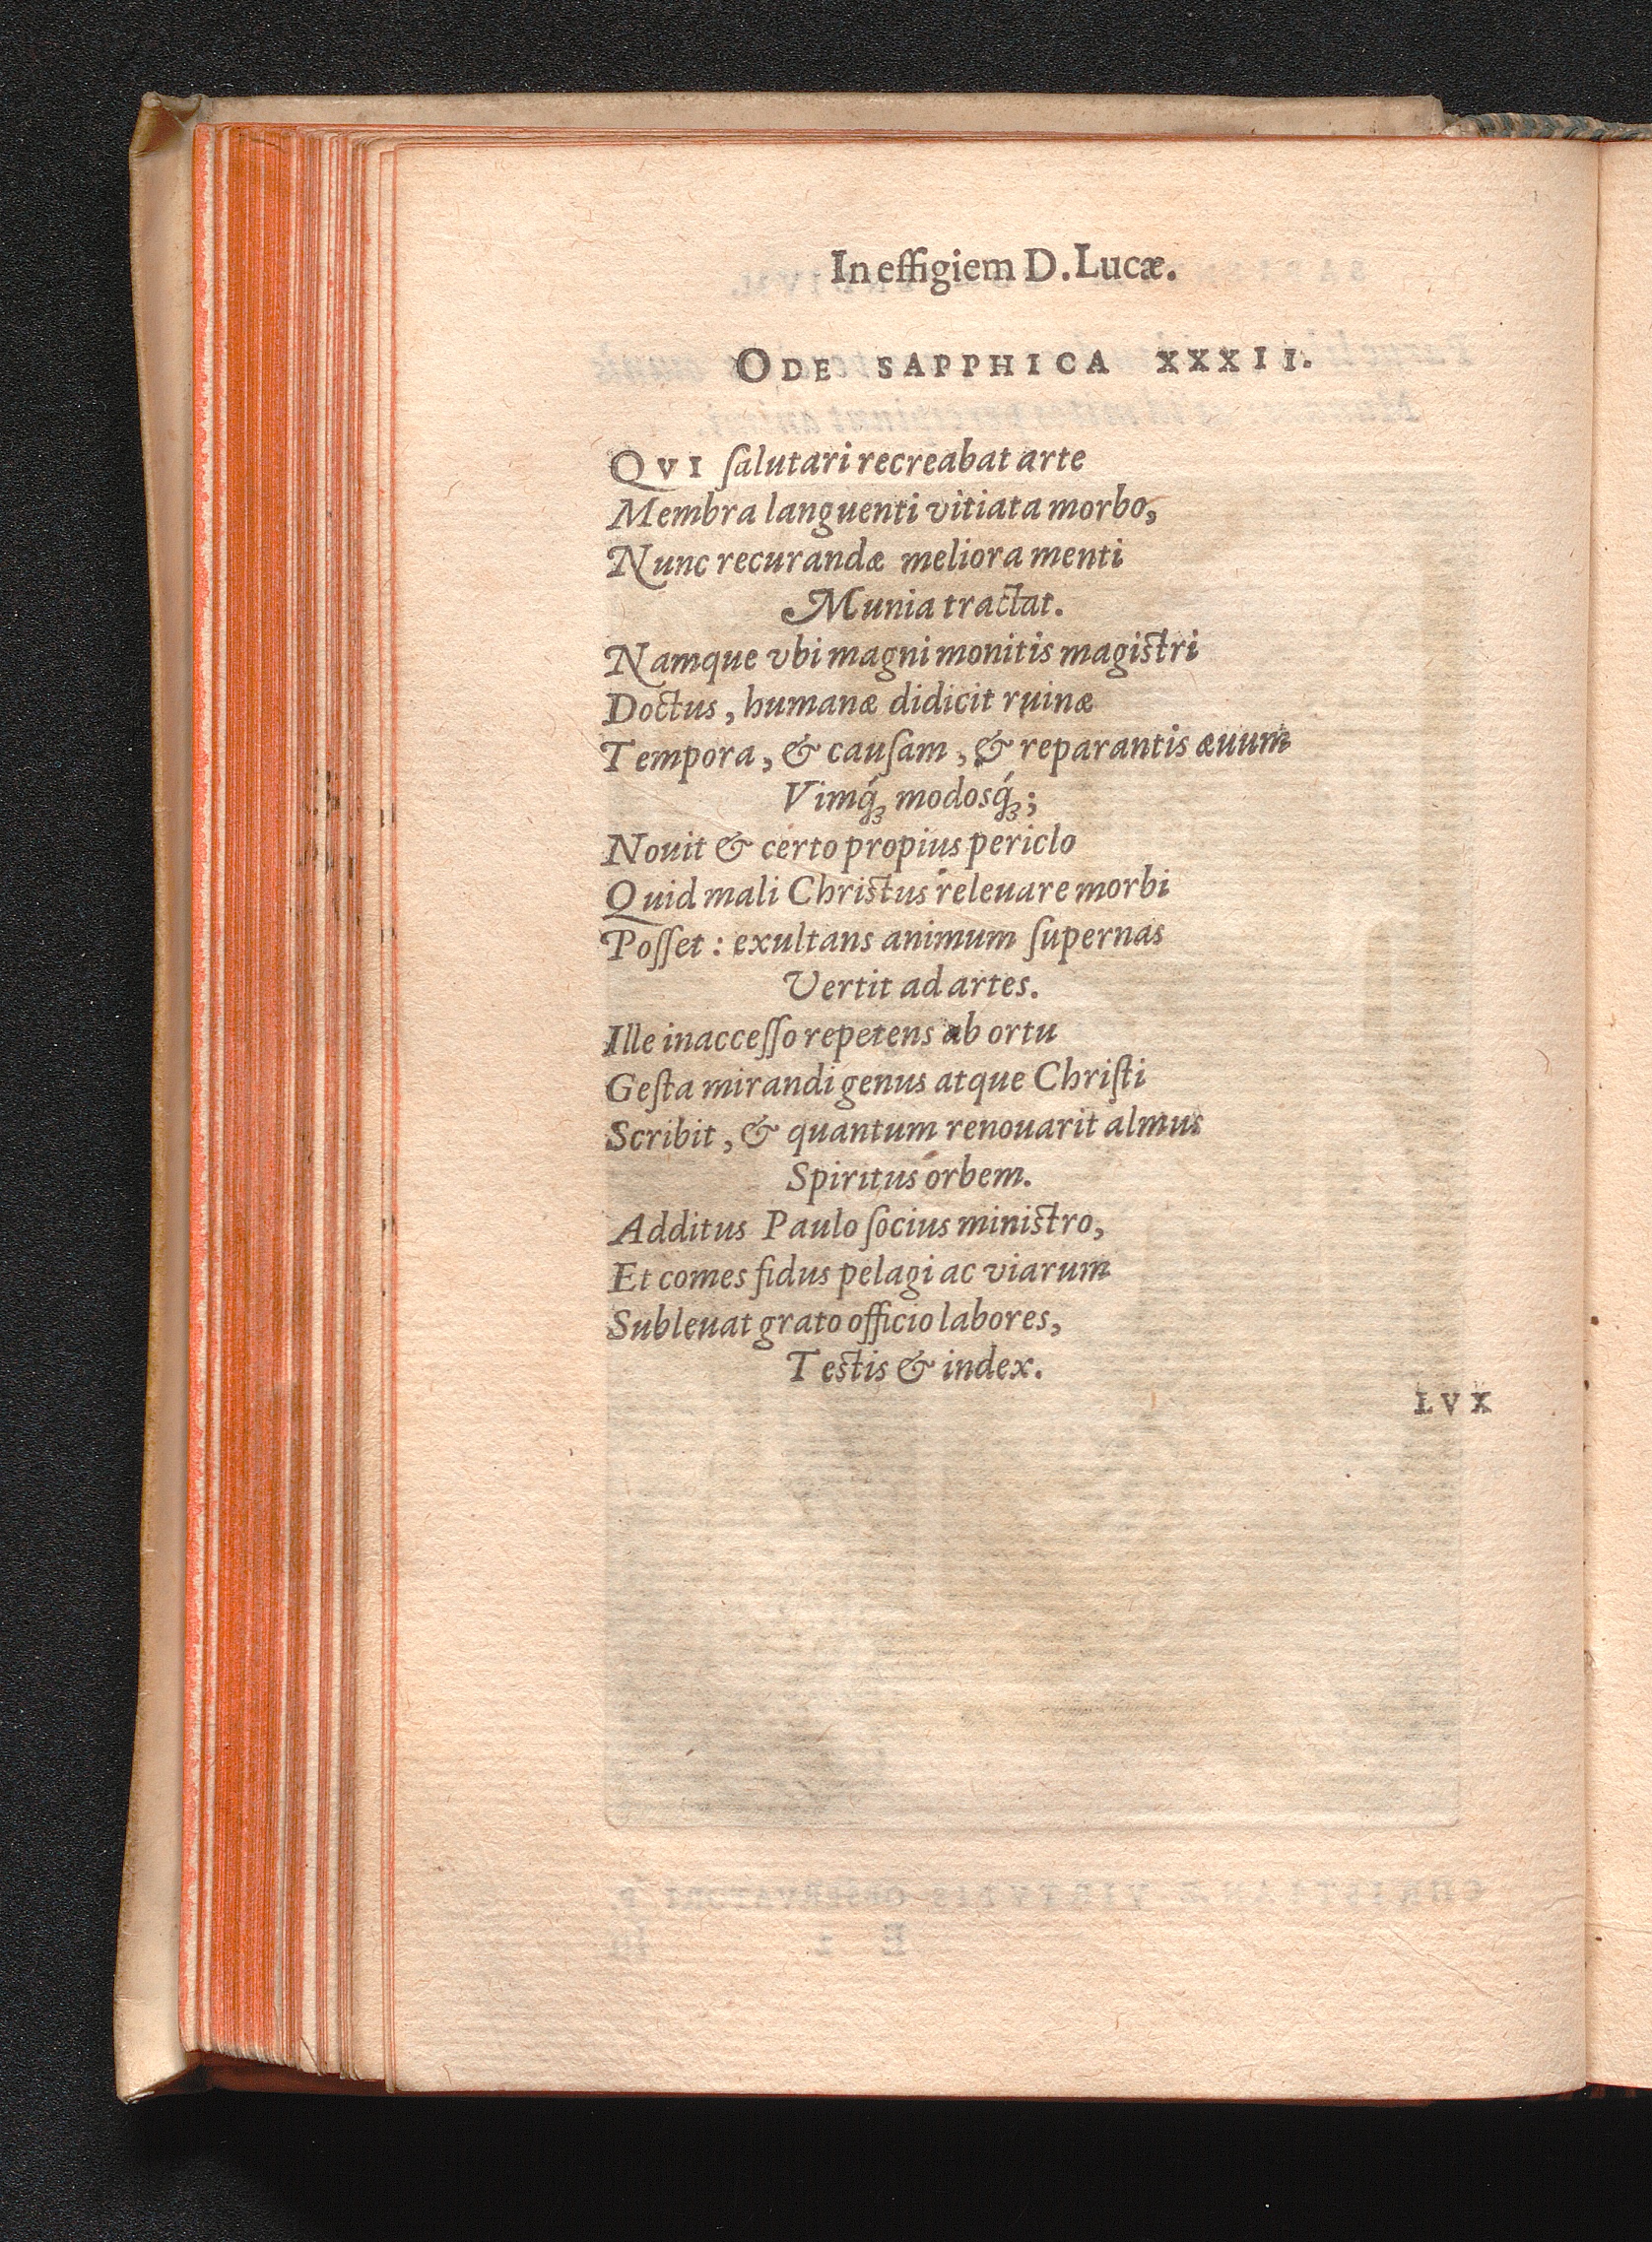 In effigiem D. Lucæ.
ODE SAPPHICA XXXII.
QVI ſalutari recreabat arte
Membra languenti vitiata morbo,
Nunc recurandæ meliora menti
Munia tractat.
Namque vbi magni monitis magistri
Doctus, humanæ didicit ruinæ
Tempora, & cauſam, & reparantis æuum
Vimq́ꝫ modosq́ꝫ;
Nouit & certo propius periclo
Quid mali Christus releuare morbi
Poſſet: exultans animum ſupernas
Vertit ad artes.
Ille inacceſſo repetens ab ortu
Geſta mirandi genus atque Chriſti
Scribit, & quantum renouarit almus
Spiritus orbem.
Additus Paulo ſocius ministro,
Et comes fidus pelagi ac viarum
Subleuat grato officio labores,
Testis & index.
LVX